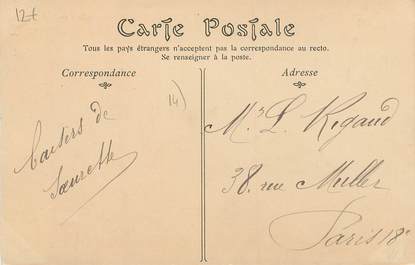 12t
Carte Postale
Tous les pays étrangers n'acceptent pas la correspondance au recto.
Se renseigner à la poste.
Correspondance
Adresse
14)
Baisers de
Laurette
Mr L. Rigaud
38 rue Muller
Paris 18e